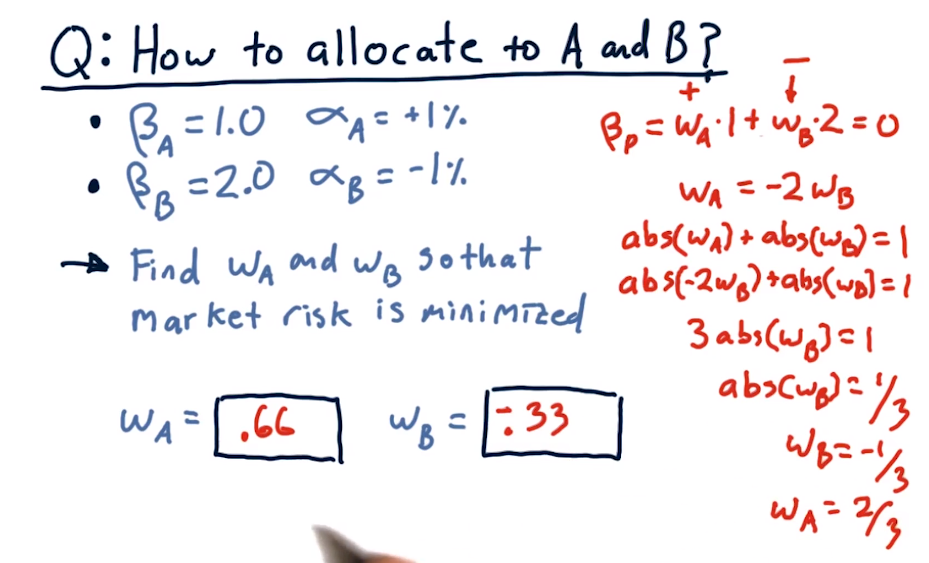 Q: How to allocate to A and B?
• βA = 1.0 αA = +1%
• βB = 2.0 αB = -1%
→ Find wA and wB so that
market risk is minimized
wA = .66 wB = -.33
+ -
βp = wA·1 + wB·2 = 0
wA = -2wB
abs(wA) + abs(wB) = 1
abs(-2wB) + abs(wB) = 1
3abs(wB) = 1
abs(wB) = 1/3
wB = -1/3
wA = 2/3